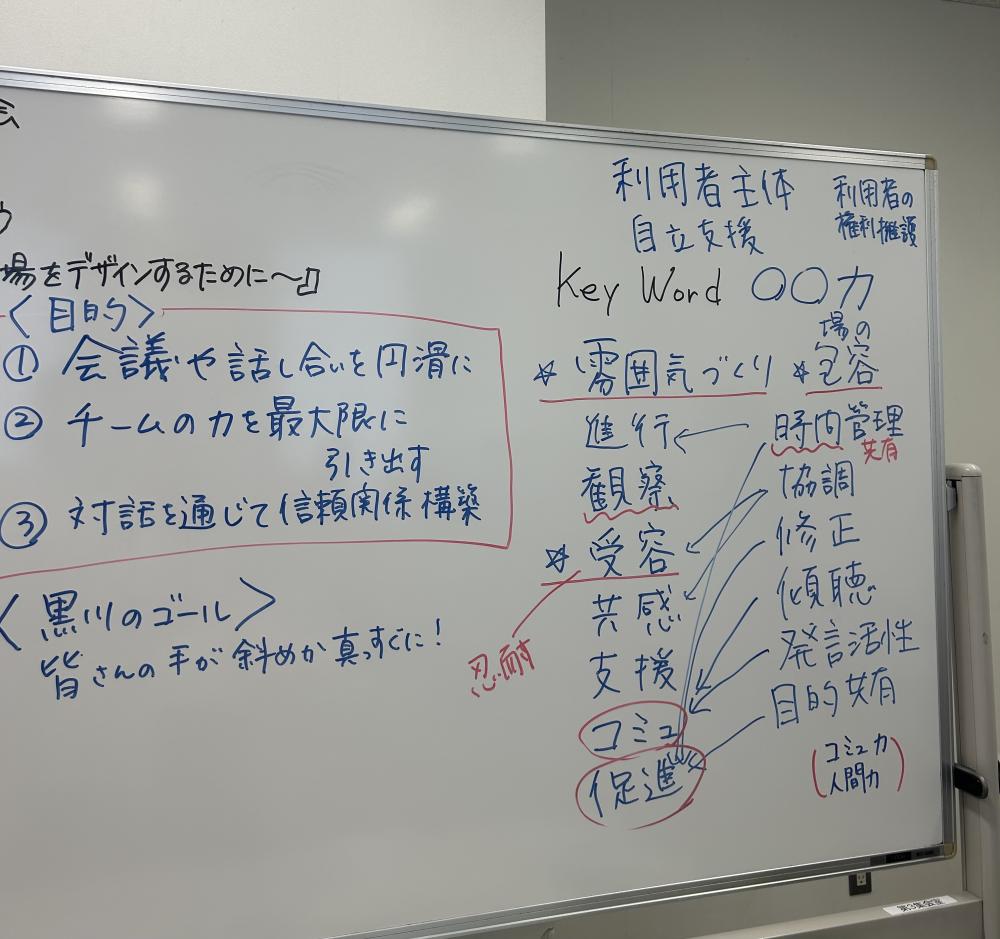 場をデザインするために〜♫
〈目的〉
① 会議や話し合いを円滑に
② チームの力を最大限に
引き出す
③ 対話を通じて信頼関係構築
〈黒川のゴール〉
皆さんの手が斜めか真っすぐに！
利用者主体
自立支援
利用者の
権利擁護
Key Word 〇〇力
☆ 雰囲気づくり
進行
観察
☆ 受容
忍耐
共感
支援
コミュ
促進
場の
☆ 包容
時間管理
共有
協調
修正
傾聴
発言活性
目的共有
(コミュ力
人間力)
第3集会室